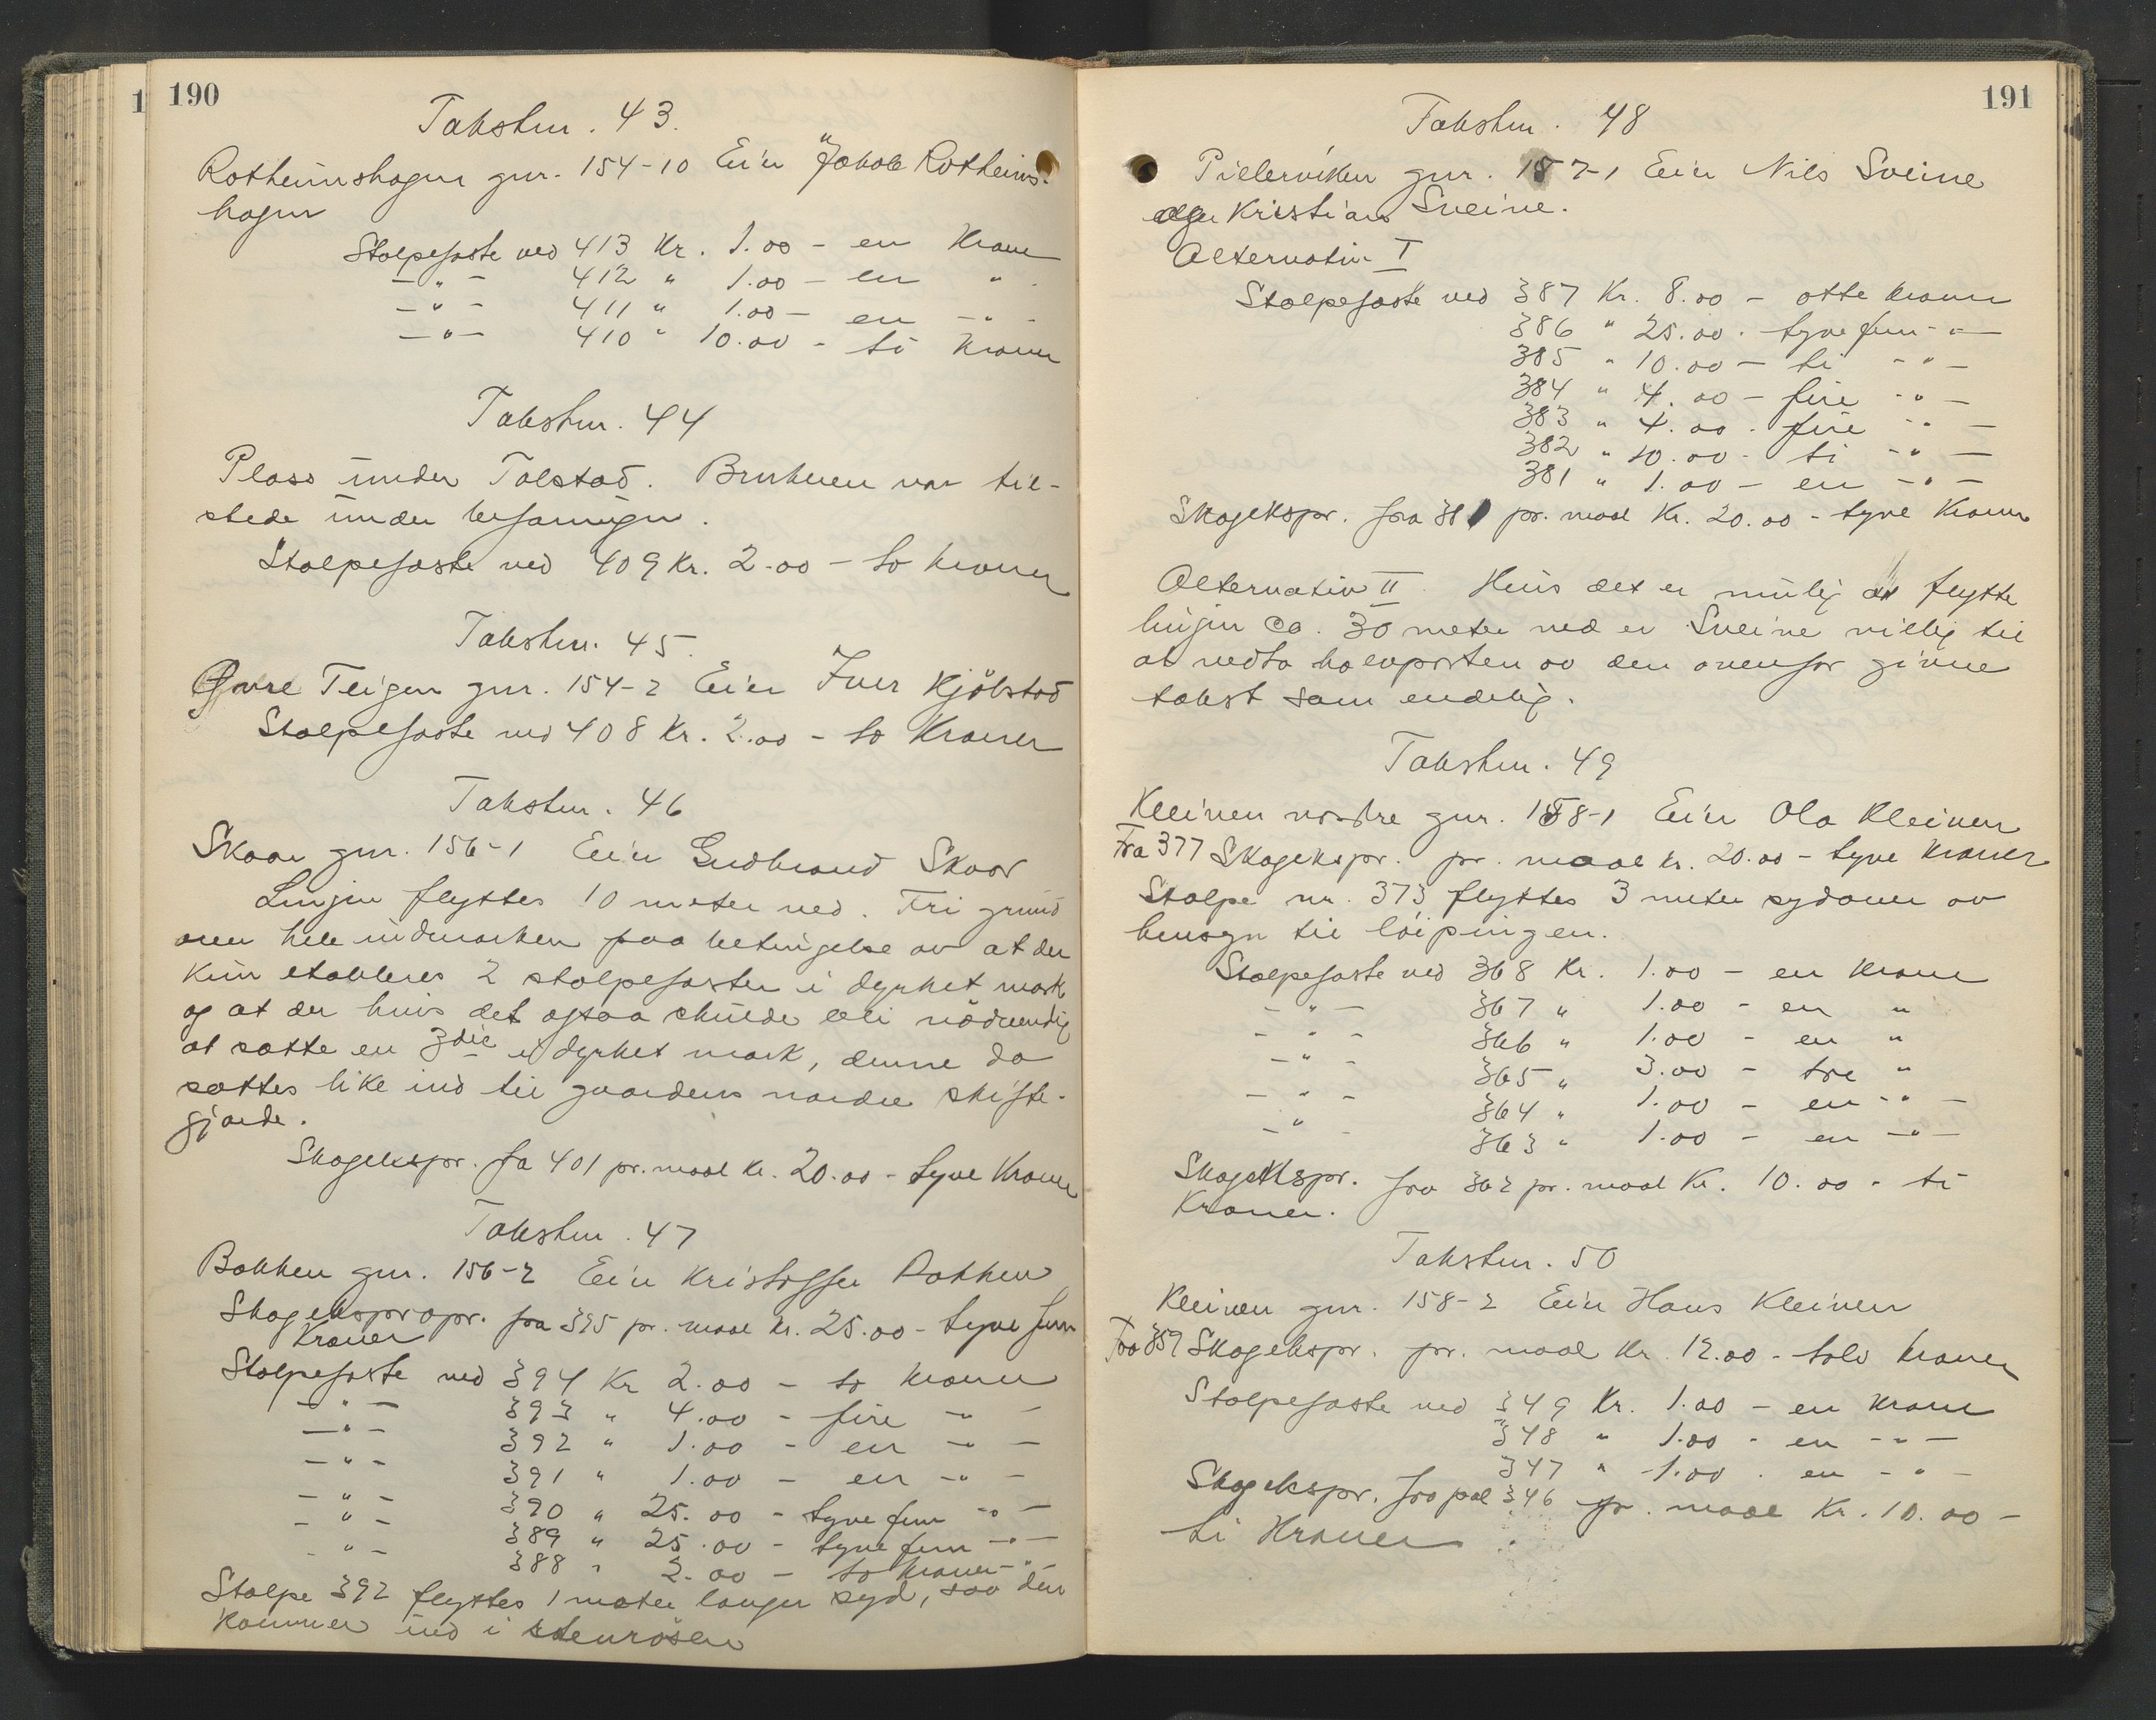 190
Takstnr. 43.
Rotheimshagen gnr. 154-10 Eier Jakob Rotheims-
hagen
Stolpefæste ved 413 Kr. 1.00 - en Krone
- " - 412 " 1.00 - en "
- " - 411 " 1.00 - en - " -
- " - 410 " 10.00 - ti Kroner
Takstnr. 44
Plass under Tolstad. Brukeren var til-
stede under befaringen.
Stolpefæste ved 409 Kr. 2.00 - to kroner
Takstnr. 45.
Øvre Teigen gnr. 154-2 Eier Iver Kjölstad
Stolpefæste ved 408 Kr. 2.00 - to Kroner
Takstnr. 46
Skaar gnr. 156-1 Eier Gudbrand Skaar
Linjen flyttes 10 meter ned. Fri grund
over hele indmarken paa betingelse av at der
kun etableres 2 stolpefæster i dyrket mark
og at der hvis det ogsaa skulde bli nödvendig
at sætte en 3die i dyrket mark, denne da
sættes like ind til gaardens nordre skifte-
gjærde.
Skogekspr. fra 401 pr. maal kr. 20.00 - tyve Kroner
Takstnr. 47
Bakken gnr. 156-2 Eier Kristoffer Bakken
Skogekspropr. fra 395 pr. maal kr. 25.00 - tyve fem
Kroner
Stolpefæste ved 394 Kr 2.00 - to kroner
- " - 393 " 4.00 - fire - " -
- " - 392 " 1.00 - en - " -
- " - 391 " 1.00 - en - " -
- " - 390 " 25.00 - tyve fem - " -
- " - 389 " 25.00 - tyve fem - " -
- " - 388 " 2.00 - to kroner - " -
Stolpe 392 flyttes 1 meter længer syd, saa den
kommer ind i stenrösen
191
Takstnr. 48
Pilerviken gnr. 157-1 Eier Nils Sveine
og Kristian Sveine.
Alternativ I
Stolpefæste ved 387 Kr. 8.00 - otte kroner
386 " 25.00 - tyve fem - " -
385 " 10.00 - ti - " -
384 " 4.00 - fire - " -
383 " 4.00 - fire - " -
382 " 10.00 - ti - " -
381 " 1.00 - en - " -
Skogekspr. fra 381 pr. maal Kr. 20.00 - tyve Kroner
Alternativ II. Hvis det er mulig at flytte
linjen ca. 30 meter ned er Sveine villig til
at vedta halvparten av den ovenfor givne
takst som endelig.
Takstnr. 49
Kleiven nordre gnr. 158-1 Eier Ola Kleiven
Fra 377 Skogekspr. pr. maal kr. 20.00 - tyve kroner
Stolpe nr. 373 flyttes 3 meter sydover av
hensyn til löipingen.
Stolpefæste ved 368 Kr. 1.00 - en krone
- " - 367 " 1.00 - en "
- " - 366 " 1.00 - en "
- " - 365 " 3.00 - tre "
- " - 364 " 1.00 - en - " -
- " - 363 " 1.00 - en - " -
Skogekspr. fra 362 pr. maal Kr. 10.00 - ti
Kroner.
Takstnr. 50
Kleiven gnr. 158-2 Eier Hans Kleiven
Fra 359 Skogekspr. pr. maal Kr. 12.00 - tolv kroner
Stolpefæste ved 349 Kr. 1.00 - en krone
348 " 1.00 - en - " -
347 " 1.00 - en - " -
Skogekspr. fra pæl 346 pr. maal Kr. 10.00 -
ti Kroner.